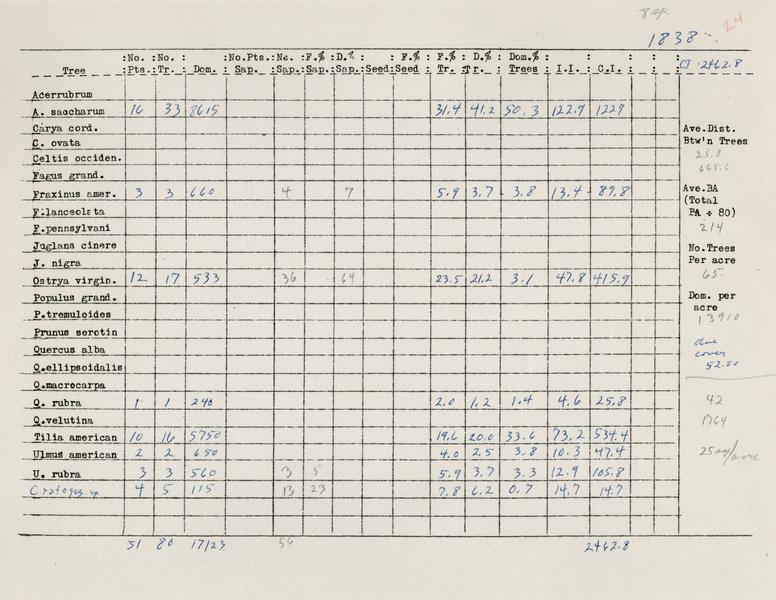 8 sp.
1838 24
:No. :No. : :No.Pts.:No. :F.% :D.% : : F.% : F.% : D.% : Dom.% : : : : :CI 2462.8
Tree :Pts.:Tr. : Dom. : Sap. :Sap.:Sap. :Sap. :Seed:Seed : Tr. :Tr. : Trees : I.I. : C.I. :
Acerrubrum
A. saccharum 16 33 8615 31.4 41.2 50.3 122.9 1229
Carya cord. Ave.Dist.
C. ovata Btw'n Trees
Celtis occiden. 25.8
Fagus grand. 665.6
Fraxinus amer. 3 3 660 4 7 5.9 3.7 3.8 13.4 89.8 Ave.BA
F.lanceolata (Total
F.pennsylvani BA ÷ 80)
214
Juglans cinere No.Trees
J. nigra Per acre
Ostrya virgin. 12 17 533 36 64 23.5 21.2 3.1 47.8 415.9 65
Populus grand. Dom. per
P.tremuloides acre
13910
Prunus serotin
Quercus alba ave
cover
Q.ellipsoidalis 52.50
Q.macrocarpa
Q. rubra 1 1 240 2.0 1.2 1.4 4.6 25.8 42
Q.velutina 1764
Tilia american 10 16 5750 19.6 20.0 33.6 73.2 534.4
Ulmus american 2 2 650 4.0 2.5 3.8 10.3 47.4
U. rubra 3 3 560 3 5 5.9 3.7 3.3 12.9 105.8
Crategus sp. 4 5 115 13 23 7.8 6.2 0.7 14.7 14.7
51 80 17123 56 2462.8